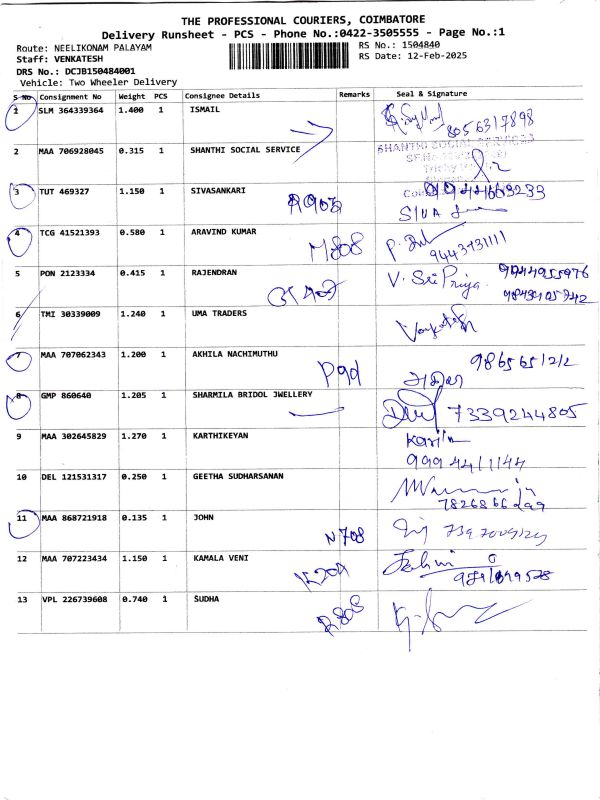 THE PROFESSIONAL COURIERS, COIMBATORE
Delivery Runsheet - PCS - Phone No.:0422-3505555 - Page No.:1
Route: NEELIKONAM PALAYAM
RS No.: 1504840
Staff: VENKATESH
RS Date: 12-Feb-2025
DRS No.: DCJB150484001
Vehicle: Two Wheeler Delivery
S No Consignment No Weight PCS Consignee Details Remarks Seal & Signature
1 SLM 364339364 1.400 1 ISMAIL 8056317898
2 MAA 706928045 0.315 1 SHANTHI SOCIAL SERVICE SHANTHI SOCIAL SERVICES
3 TUT 469327 1.150 1 SIVASANKARI
SIVA
4 TCG 41521393 0.580 1 ARAVIND KUMAR M808
9443731111
5 PON 2123334 0.415 1 RAJENDRAN V. Sri Priya 9944955976
6 TMI 30339009 1.240 1 UMA TRADERS Venkatesh
7 MAA 707062343 1.200 1 AKHILA NACHIMUTHU
8 GMP 860640 1.205 1 SHARMILA BRIDOL JWELLERY 7339244805
9 MAA 302645829 1.270 1 KARTHIKEYAN
9994411144
10 DEL 121531317 0.250 1 GEETHA SUDHARSANAN
11 MAA 868721918 0.135 1 JOHN N708
12 MAA 707223434 1.150 1 KAMALA VENI K204
13 VPL 226739608 0.740 1 SUDHA R808